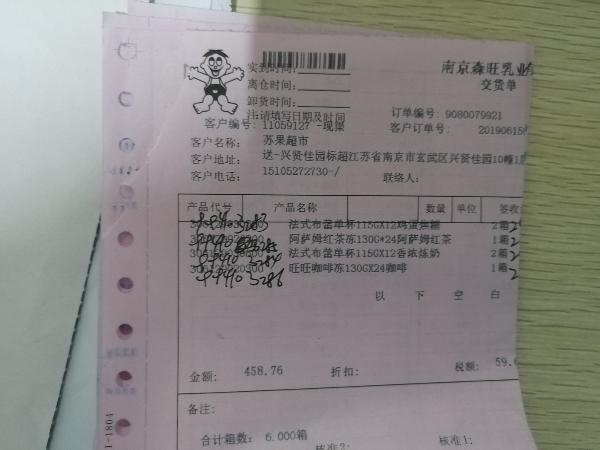 实到时间:
南京森旺乳业
离仓时间:
交货单
卸货时间:
注:请填写日期及时间
订单编号: 9080079921
客户编号: 11059127 -现渠
客户订单号: 20190615
客户名称: 苏果超市
客户地址: 送-兴贤佳园标超江苏省南京市玄武区兴贤佳园10幢1
客户电话: 15105272730-/ 联络人:
产品代号 产品名称 数量 单位 签收
法式布蕾单杯115GX12鸡蛋焦糖 2箱
阿萨姆红茶冻130G*24阿萨姆红茶 1箱
法式布蕾单杯115GX12香浓炼奶 2箱
旺旺咖啡冻130GX24咖啡 1箱
以 下 空 白
金额: 458.76 折扣: 税额: 59.
备注:
合计箱数: 6.000箱 核准2: 核准1:
1-1804